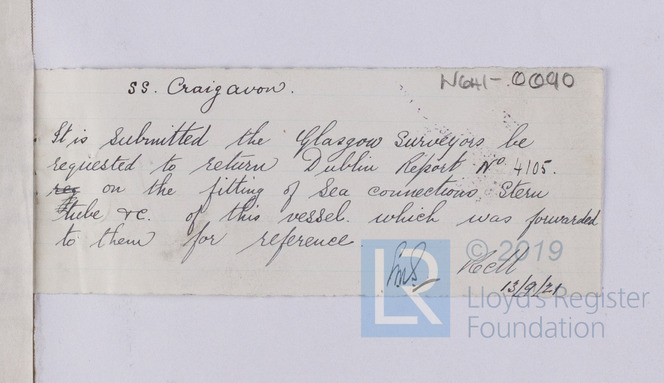 N641-0090
SS. Craigavon.
It is submitted the Glasgow Surveyors be
requested to return Dublin Report No. 4105.
on the fitting of Sea connections, Stern
tube &c. of this vessel. which was forwarded
to them for reference.
13/9/21
LR
© 2019
Lloyd's Register
Foundation